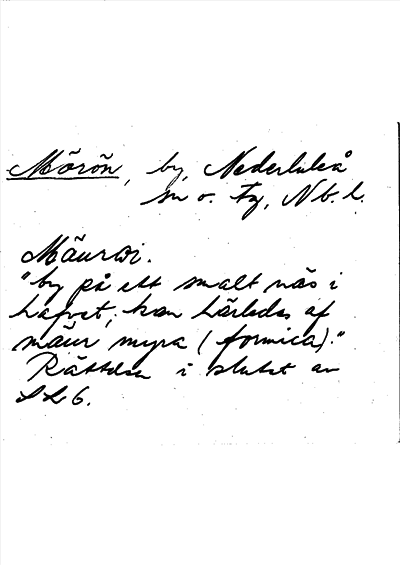 Mörön, by, Nederluleå
sn o. tg, Nb. l.
Mäurwi.
"by på ett smalt näs i
hafvet; kan härledas af
mäur myra (formica)."
Rättelse i slutet av
LL 6.